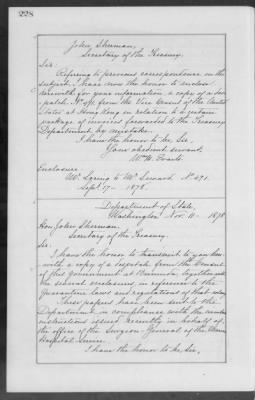 228
John Sherman,
Secretary of the Treasury.
Sir:
Refering to previous correspondence on the
subject, I have now the honor to enclose
herewith, for your information, a copy of a des-
patch, No. 491, from the Vice Consul of the United
States at Hong Kong in relation to a certain
package of invoices forwarded to the Treasury
Department by mistake.
I have the honor to be, Sir,
Your obedient servant,
Wm. M. Evarts.
Enclosure
Mr. Loring to Mr. Seward. No. 491.
Sept. 17 - 1878.
Department of State,
Washington Nov. 11 - 1878
Hon. John Sherman,
Secretary of the Treasury.
Sir:
I have the honor to transmit to you here-
with a copy of a despatch from the Consul
of this government at Bermuda, together with
the several enclosures, in reference to the
Quarantine laws and regulations of that
These papers have been sent to the
Department in compliance with the
instructions issued recently in behalf of
the office of the Surgeon-General of the Marine
Hospital Service.
I have the honor to be, Sir,